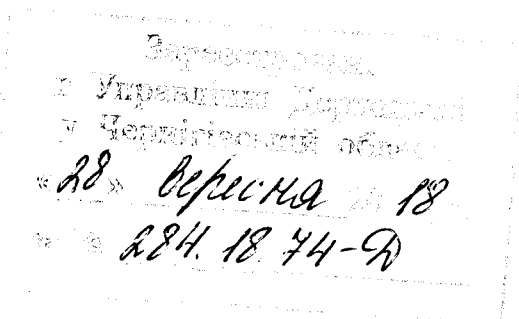 Зареєстровано
в Управлінні Держпраці
у Чернігівській області
«28» вересня 2018
№ 284.18.74-Д